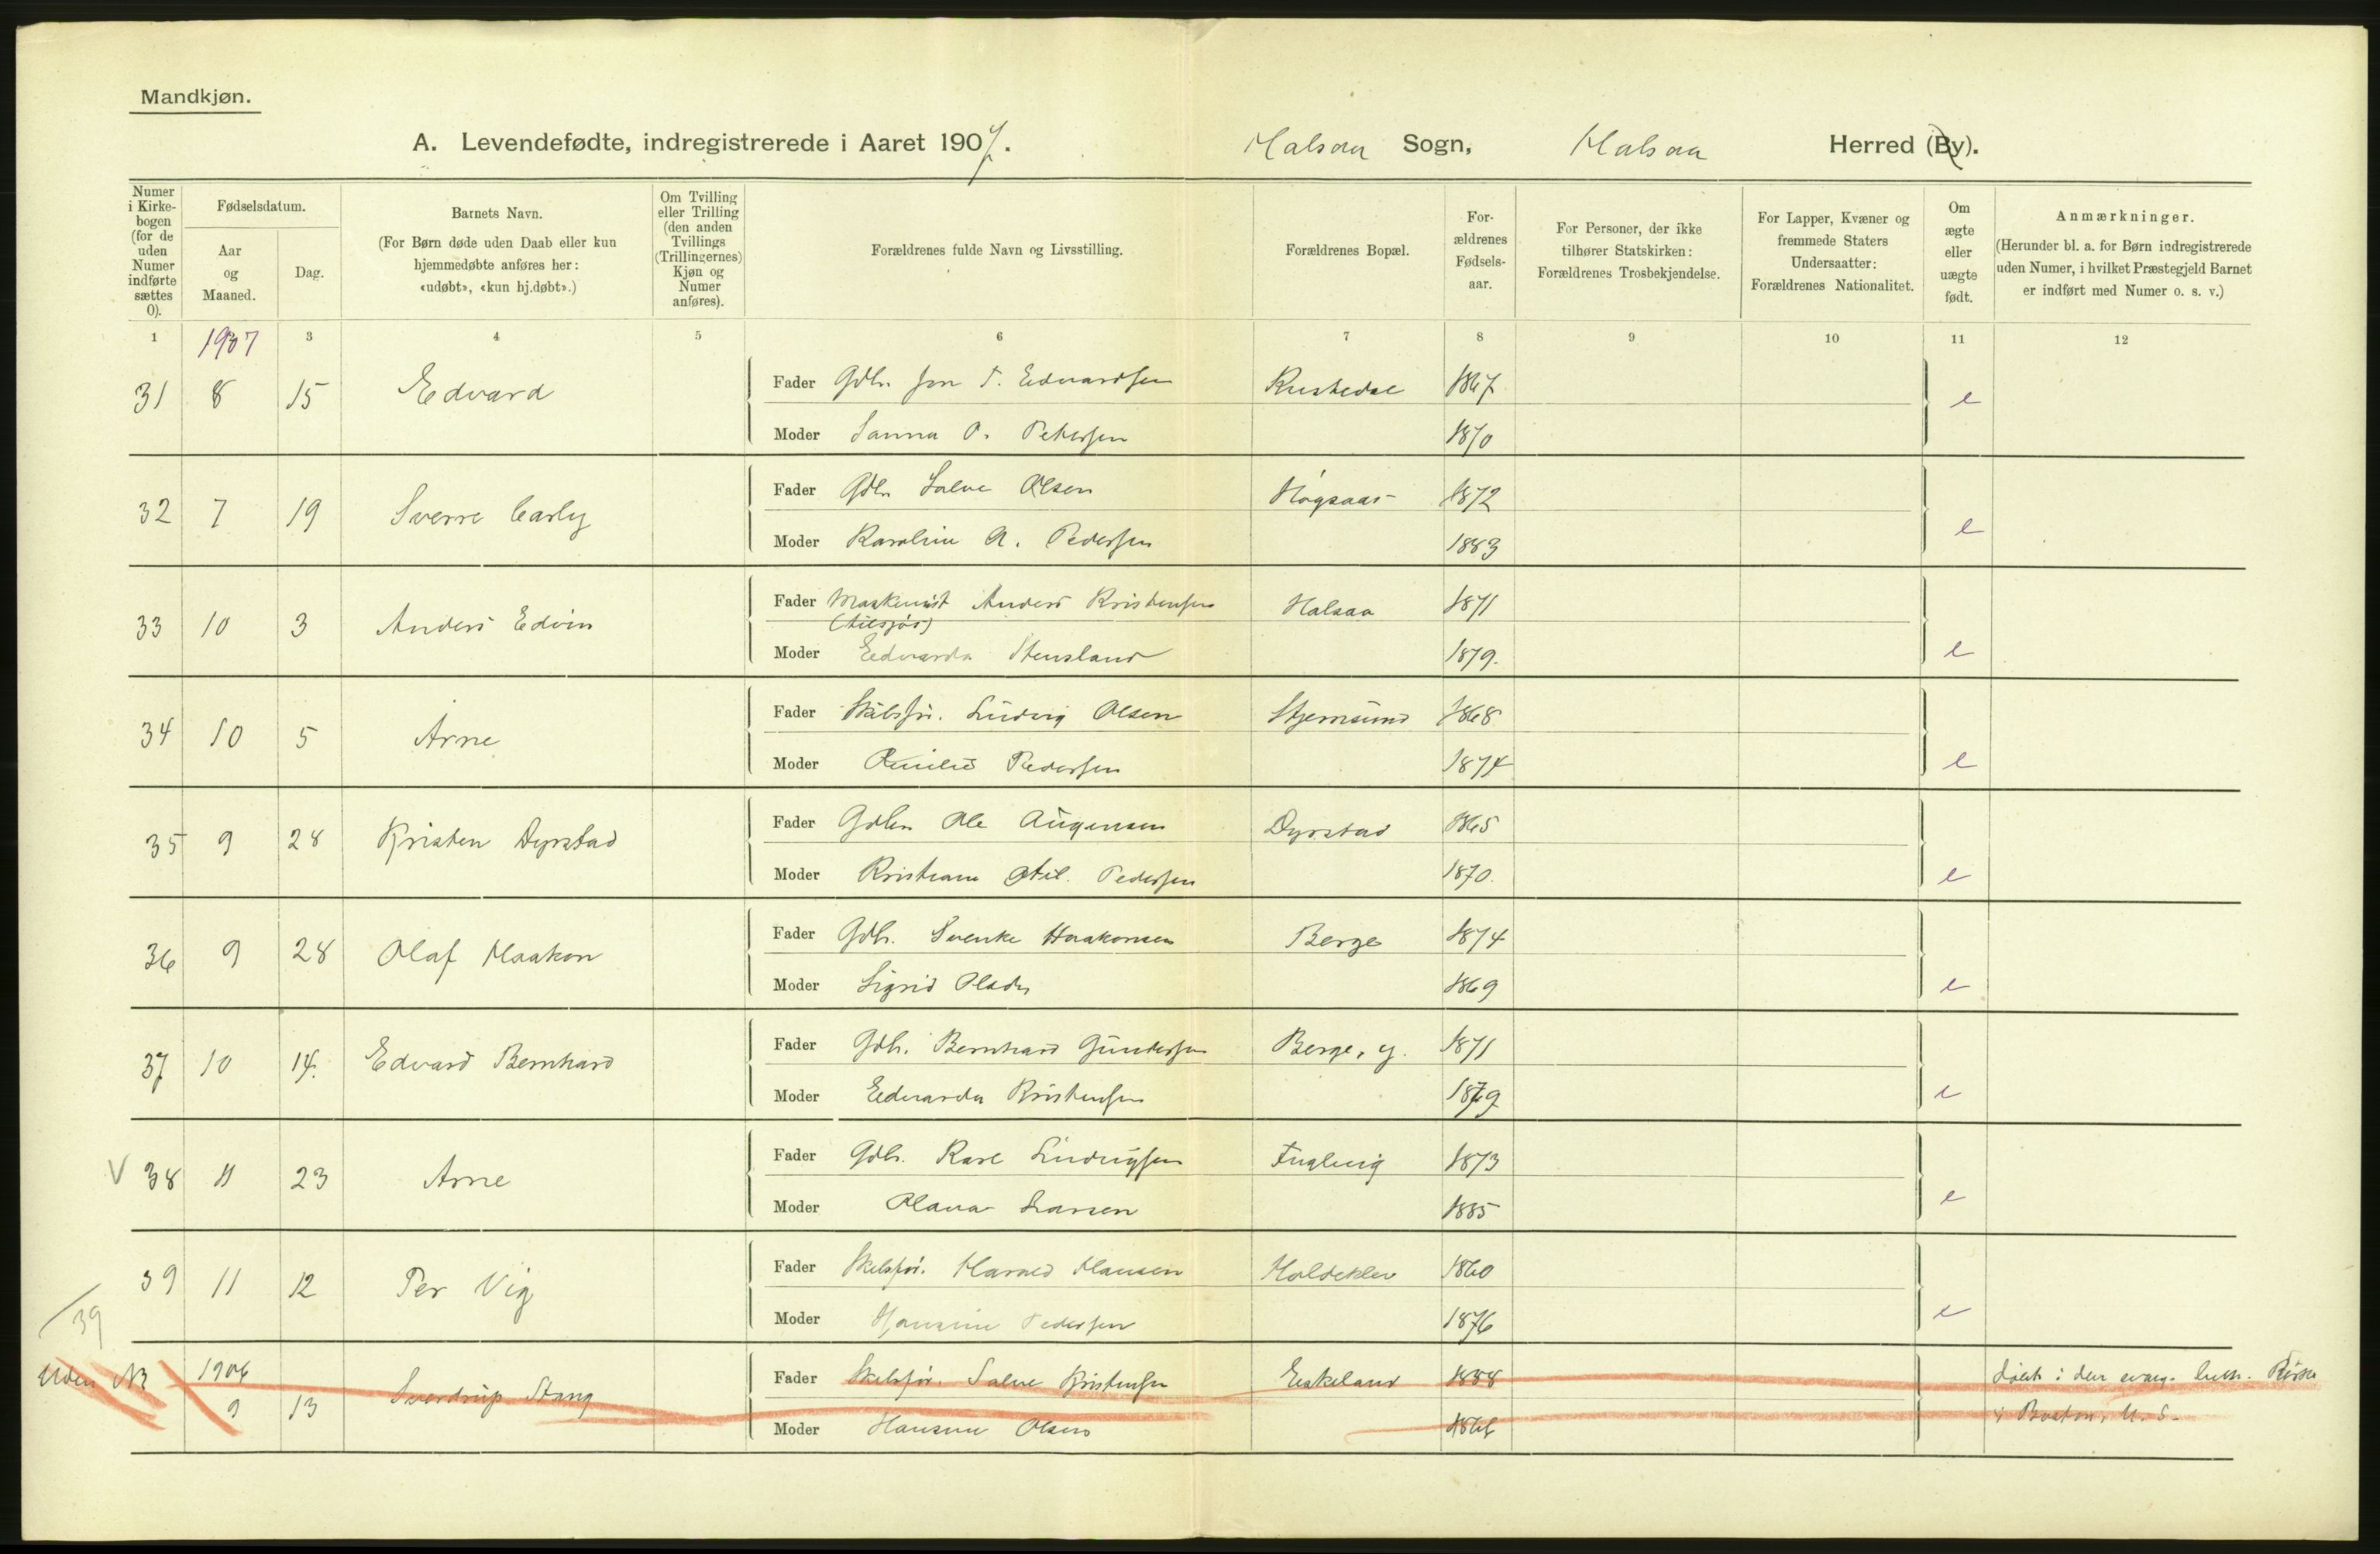 Mandkjøn.
A. Levendefødte, indregistrerede i Aaret 1907. Halsaa Sogn, Halsaa Herred (By).
Numer i Kirke-bogen (for de uden Numer indførte sættes 0).
Fødselsdatum.
Aar og Maaned.
Dag.
Barnets Navn.
(For Børn døde uden Daab eller kun hjemmedøbte anføres her: «udøbt», «kun hj.døbt».)
Om Tvilling eller Trilling (den anden Tvillings (Trillingernes) Kjøn og Numer anføres).
Forældrenes fulde Navn og Livsstilling.
Forældrenes Bopæl.
For-ældrenes Fødsels-aar.
For Personer, der ikke tilhører Statskirken: Forældrenes Trosbekjendelse.
For Lapper, Kvæner og fremmede Staters Undersaatter: Forældrenes Nationalitet.
Om ægte eller uægte født.
Anmærkninger.
(Herunder bl. a. for Børn indregistrerede uden Numer, i hvilket Præstegjeld Barnet er indført med Numer o. s. v.)
1 1907 3 4 5 6 7 8 9 10 11 12
31 8 15 Edvard Fader Gdbr. Jon T. Edvardsen 1867 e
Moder Sanna P. Petersen 1870
32 7 19 Sverre Carly Fader Gdbr Salve Olsen Høgsaas 1872 e
Moder Karoline A. Pedersen 1883
33 10 3 Anders Edvin Fader Maskinist Anders Kristensen Halsaa 1871
(tilsjøs)
Moder Edvarda Stensland 1879. e
34 10 5 Arne Fader Skibsfør. Ludvig Olsen Stjernsund 1868
Moder Emilie Pedersen 1874 e
35 9 28 Kristen Dyrstad Fader Gdbr Ole Augensen Dyrstad 1865
Moder Kristiane Pedersen 1870. e
36 9 28 Olaf Haakon Fader Gdbr. Svenke Haakonsen Berge 1874
Moder Sigrid 1869 e
37 10 14. Edvard Bernhard Fader Gdbr. Bernhard Gundersen Berge, y. 1871
Moder Edvarda Kristensen 1879 e
V 38 11 23 Arne Fader Gdbr. Karl Ludvigsen Fuglevig 1873
Moder Olava Larsen 1885 e
39 11 12 Per Vig Fader Skibsfør. Harald Hansen Holdeklev 1860
39
Moder Hansine Pedersen 1876 e
Uden No 1906 9 13 Sverdrup Stang Fader Skibsfør. Salve Kristensen Eskeland 1858 Døbt i den evang. luth. Kirke
Moder Hansine Olsen 1866 i Boston, U. S.